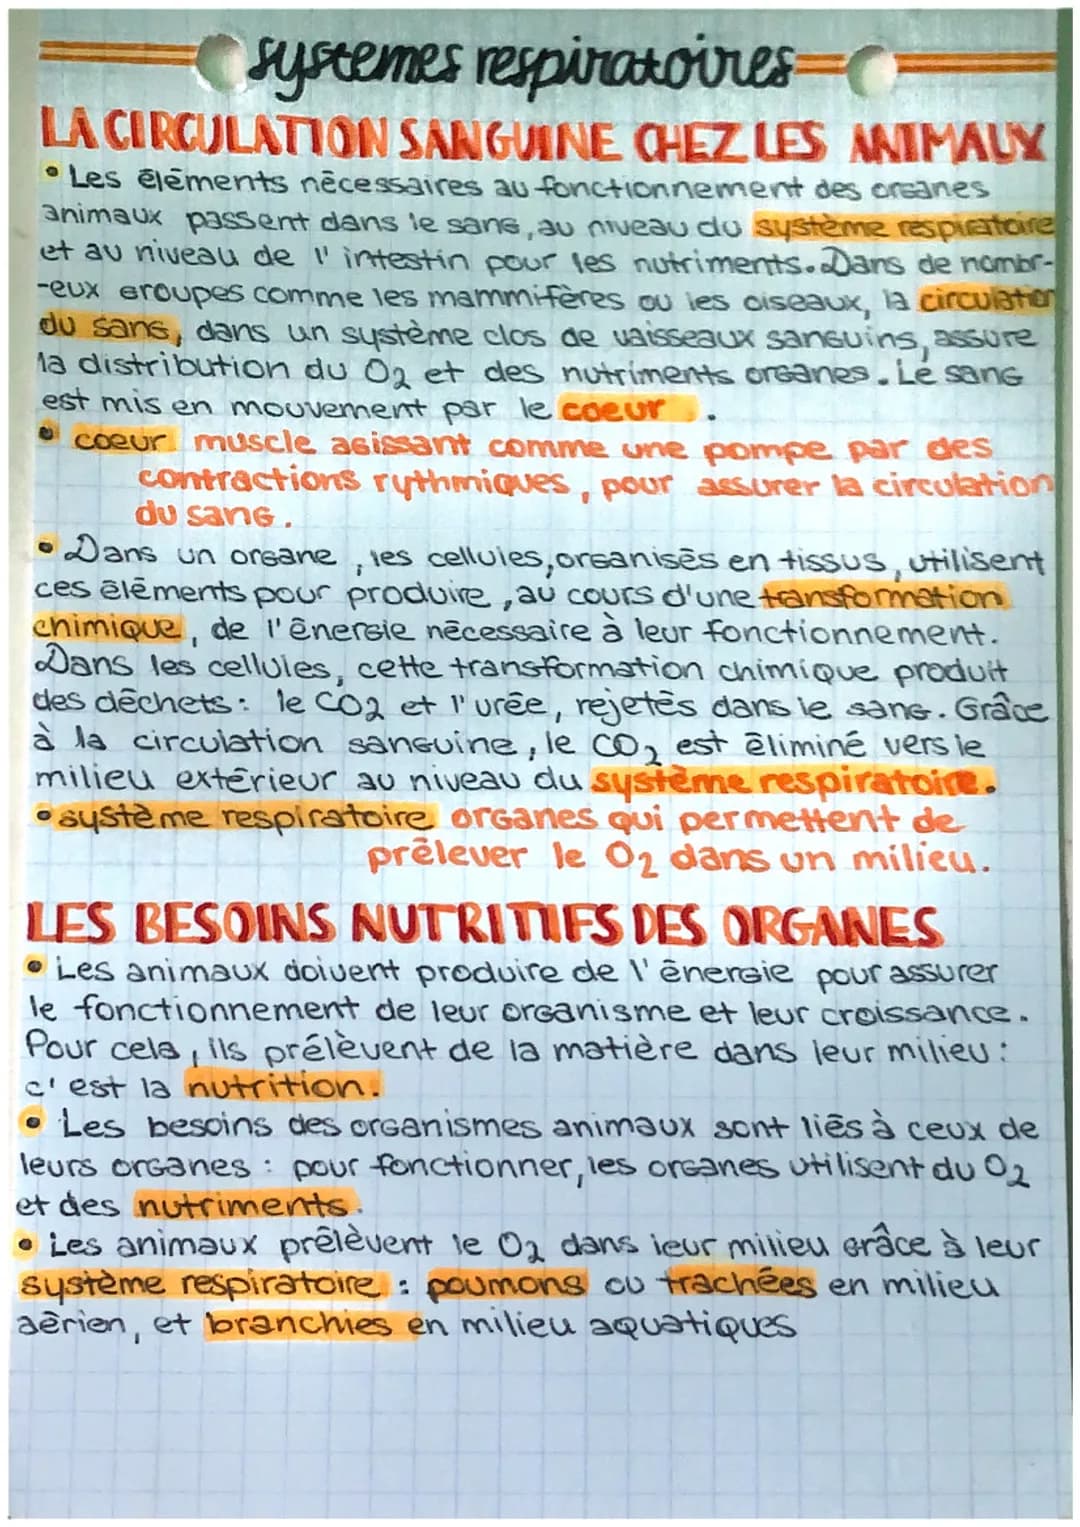 systemes respiratoires
LA CIRCULATION SANGUINE CHEZ LES ANIMAUX
• Les éléments nécessaires au fonctionnement des organes
animaux passent dans le sang, au niveau du système respiratoire
et au niveau de l'intestin pour les nutriments. Dans de nombr-
-eux groupes comme les mammifères ou les oiseaux, la circulation
du sang, dans un système clos de vaisseaux sanguins, assure
la distribution du O2 et des nutriments organes. Le sang
est mis en mouvement par le coeur.
• coeur muscle agissant comme une pompe par des
contractions rythmiques, pour assurer la circulation
du sang.
• Dans un organe, les cellules, organisés en tissus, utilisent
ces éléments pour produire, au cours d'une transformation
chimique, de l'énergie nécessaire à leur fonctionnement.
Dans les cellules, cette transformation chimique produit
des déchets : le CO2 et l'urée, rejetés dans le sang. Grâce
à la circulation sanguine, le CO2 est éliminé vers le
milieu extérieur au niveau du système respiratoire.
• système respiratoire organes qui permettent de
prélever le O2 dans un milieu.
LES BESOINS NUTRITIFS DES ORGANES
• Les animaux doivent produire de l'énergie pour assurer
le fonctionnement de leur organisme et leur croissance.
Pour cela, ils prélèvent de la matière dans leur milieu :
c'est la nutrition.
• Les besoins des organismes animaux sont liés à ceux de
leurs organes : pour fonctionner, les organes utilisent du O2
et des nutriments.
• Les animaux prélèvent le O2 dans leur milieu grâce à leur
système respiratoire : poumons ou trachées en milieu
aérien, et branchies en milieu aquatiques